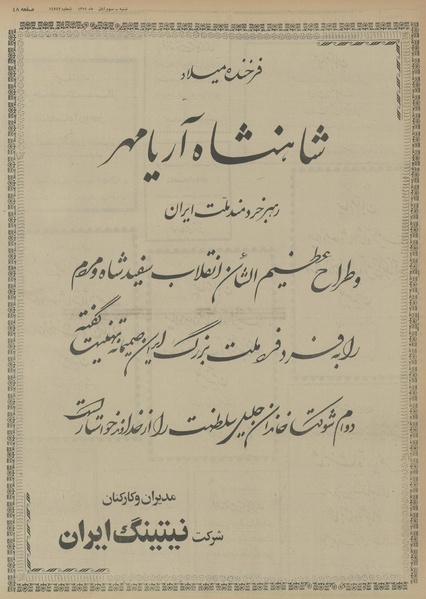 صفحه ۴۸
شنبه - سوم آبان
فرخنده میلاد
شاهنشاه آریامهر
رهبر خردمند ملت ایران
و طراح عظیم الشأن انقلاب سفید شاه و مردم
را به فرد فرد ملت بزرگ ایران صمیمانه تهنیت گفته
دوام شوکت خاندان جلیل سلطنت را از خداوند خواستار است
مدیران و کارکنان
شرکت نیتینگ ایران